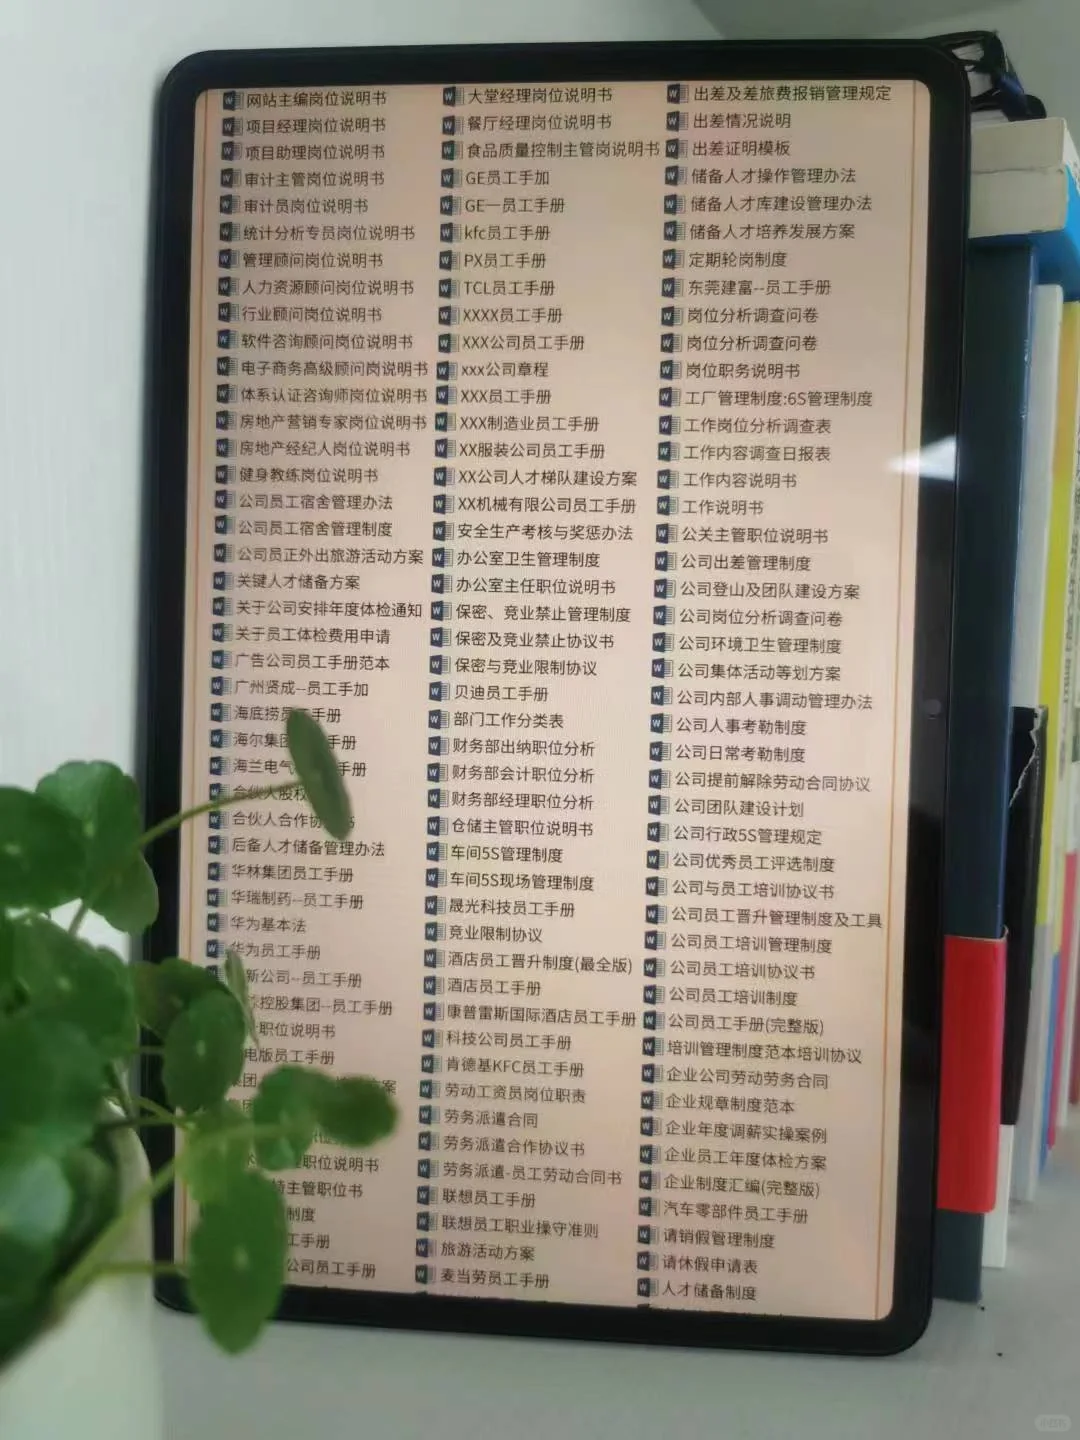 网站主编岗位说明书
项目经理岗位说明书
项目助理岗位说明书
审计主管岗位说明书
审计员岗位说明书
统计分析专员岗位说明书
管理顾问岗位说明书
人力资源顾问岗位说明书
行业顾问岗位说明书
软件咨询顾问岗位说明书
电子商务高级顾问岗说明书
体系认证咨询师岗位说明书
房地产营销专家岗位说明书
房地产经纪人岗位说明书
健身教练岗位说明书
公司员工宿舍管理办法
公司员工宿舍管理制度
公司员正外出旅游活动方案
关键人才储备方案
关于公司安排年度体检通知
关于员工体检费用申请
广告公司员工手册范本
广州贤成--员工手加
海底捞员 手册
海尔集 手册
海兰电气 手册
合伙人股权
合伙人合作协 书
后备人才储备管理办法
华林集团员工手册
华瑞制药--员工手册
华为基本法
华为员工手册
新公司--员工手册
控股集团--员工手册
职位说明书
电版员工手册
集团 方案
职位说明书
主管职位书
制度
工手册
公司员工手册
大堂经理岗位说明书
餐厅经理岗位说明书
食品质量控制主管岗说明书
GE员工手加
GE一员工手册
kfc员工手册
PX员工手册
TCL员工手册
XXXX员工手册
XXX公司员工手册
xxx公司章程
XXX员工手册
XXX制造业员工手册
XX服装公司员工手册
XX公司人才梯队建设方案
XX机械有限公司员工手册
安全生产考核与奖惩办法
办公室卫生管理制度
办公室主任职位说明书
保密、竞业禁止管理制度
保密及竞业禁止协议书
保密与竞业限制协议
贝迪员工手册
部门工作分类表
财务部出纳职位分析
财务部会计职位分析
财务部经理职位分析
仓储主管职位说明书
车间5S管理制度
车间5S现场管理制度
晟光科技员工手册
竞业限制协议
酒店员工晋升制度(最全版)
酒店员工手册
康普雷斯国际酒店员工手册
科技公司员工手册
肯德基KFC员工手册
劳动工资员岗位职责
劳务派遣合同
劳务派遣合作协议书
劳务派遣-员工劳动合同书
联想员工手册
联想员工职业操守准则
旅游活动方案
麦当劳员工手册
出差及差旅费报销管理规定
出差情况说明
出差证明模板
储备人才操作管理办法
储备人才库建设管理办法
储备人才培养发展方案
定期轮岗制度
东莞建富--员工手册
岗位分析调查问卷
岗位分析调查问卷
岗位职务说明书
工厂管理制度:6S管理制度
工作岗位分析调查表
工作内容调查日报表
工作内容说明书
工作说明书
公关主管职位说明书
公司出差管理制度
公司登山及团队建设方案
公司岗位分析调查问卷
公司环境卫生管理制度
公司集体活动等划方案
公司内部人事调动管理办法
公司人事考勒制度
公司日常考勒制度
公司提前解除劳动合同协议
公司团队建设计划
公司行政5S管理规定
公司优秀员工评选制度
公司与员工培训协议书
公司员工晋升管理制度及工具
公司员工培训管理制度
公司员工培训协议书
公司员工培训制度
公司员工手册(完整版)
培训管理制度范本培训协议
企业公司劳动劳务合同
企业规章制度范本
企业年度调薪实操案例
企业员工年度体检方案
企业制度汇编(完整版)
汽车零部件员工手册
请销假管理制度
请休假申请表
人才储备制度